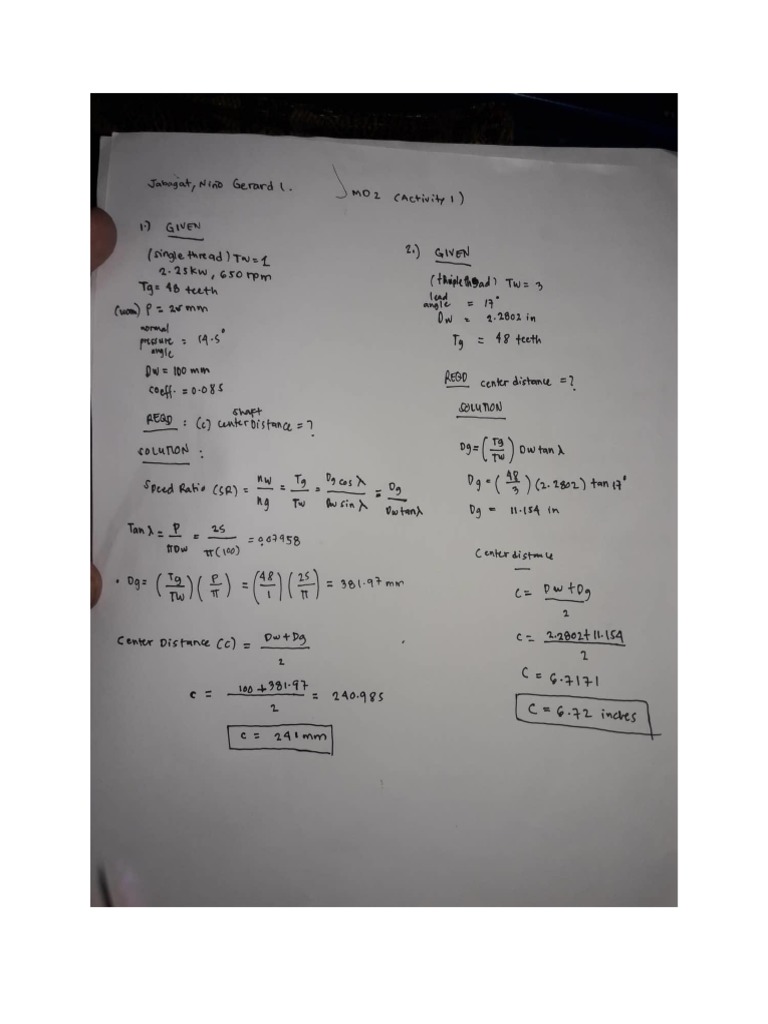 Jabagat, Niño Gerard L.
MD2 (Activity 1)
1.) GIVEN
(single thread) Tw = 1
2.25kw, 650 rpm
Tg = 48 teeth
(worm) P = 25 mm
normal
pressure = 14.5°
angle
Dw = 100 mm
coeff. = 0.085
REQD : (c) center shaft Distance = ?
SOLUTION :
Speed Ratio (SR) = nw/ng = Tg/Tw = Dg cos λ/Dw sin λ = Dg/Dw tan λ
Tan λ = P/πDw = 25/π(100) = 0.07958
• Dg = (Tg/Tw)(P/π) = (48/1)(25/π) = 381.97 mm
Center Distance (C) = Dw + Dg/2
c = 100 + 381.97/2 = 240.985
c = 241 mm
2.) GIVEN
(triple thread) Tw = 3
lead
angle = 17°
Dw = 2.2802 in
Tg = 48 teeth
REQD center distance = ?
SOLUTION
Dg = (Tg/Tw) Dw tan λ
Dg = (48/3)(2.2802) tan 17°
Dg = 11.154 in
Center distance
C = Dw + Dg/2
C = 2.2802 + 11.154/2
C = 6.7171
C = 6.72 inches